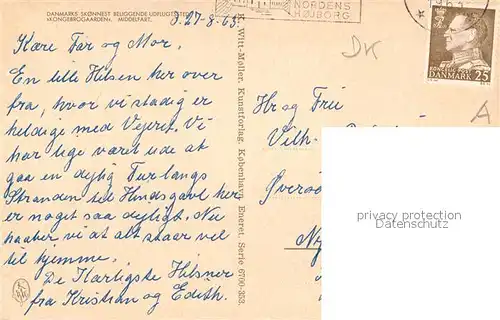 DANMARKS SKØNNEST BELIGGENDE UDFLUGTSSTED
»KONGEBROGAARDEN«, MIDDELFART.
d. 27-8-63.
Kære Far og Mor.
En lille Hilsen her over
fra, hvor vi stadig er
heldige med Vejret. Vi
har lige været ude at
gaa en dejlig Tur langs
Stranden til Hindsgavl her
er noget saa dejligt. Nu
haaber vi at alt staar vel
til hjemme.
De Kærligste Hilsner
fra Kristian og Edith.
K. Witt-Møller. Kunstforlag. København. Eneret. Serie 6700-353.
NORDENS
HØJBORG
DANMARK 25
DK
A
Hr og Fru
Vilh.
Øverød
privacy protection
Datenschutz